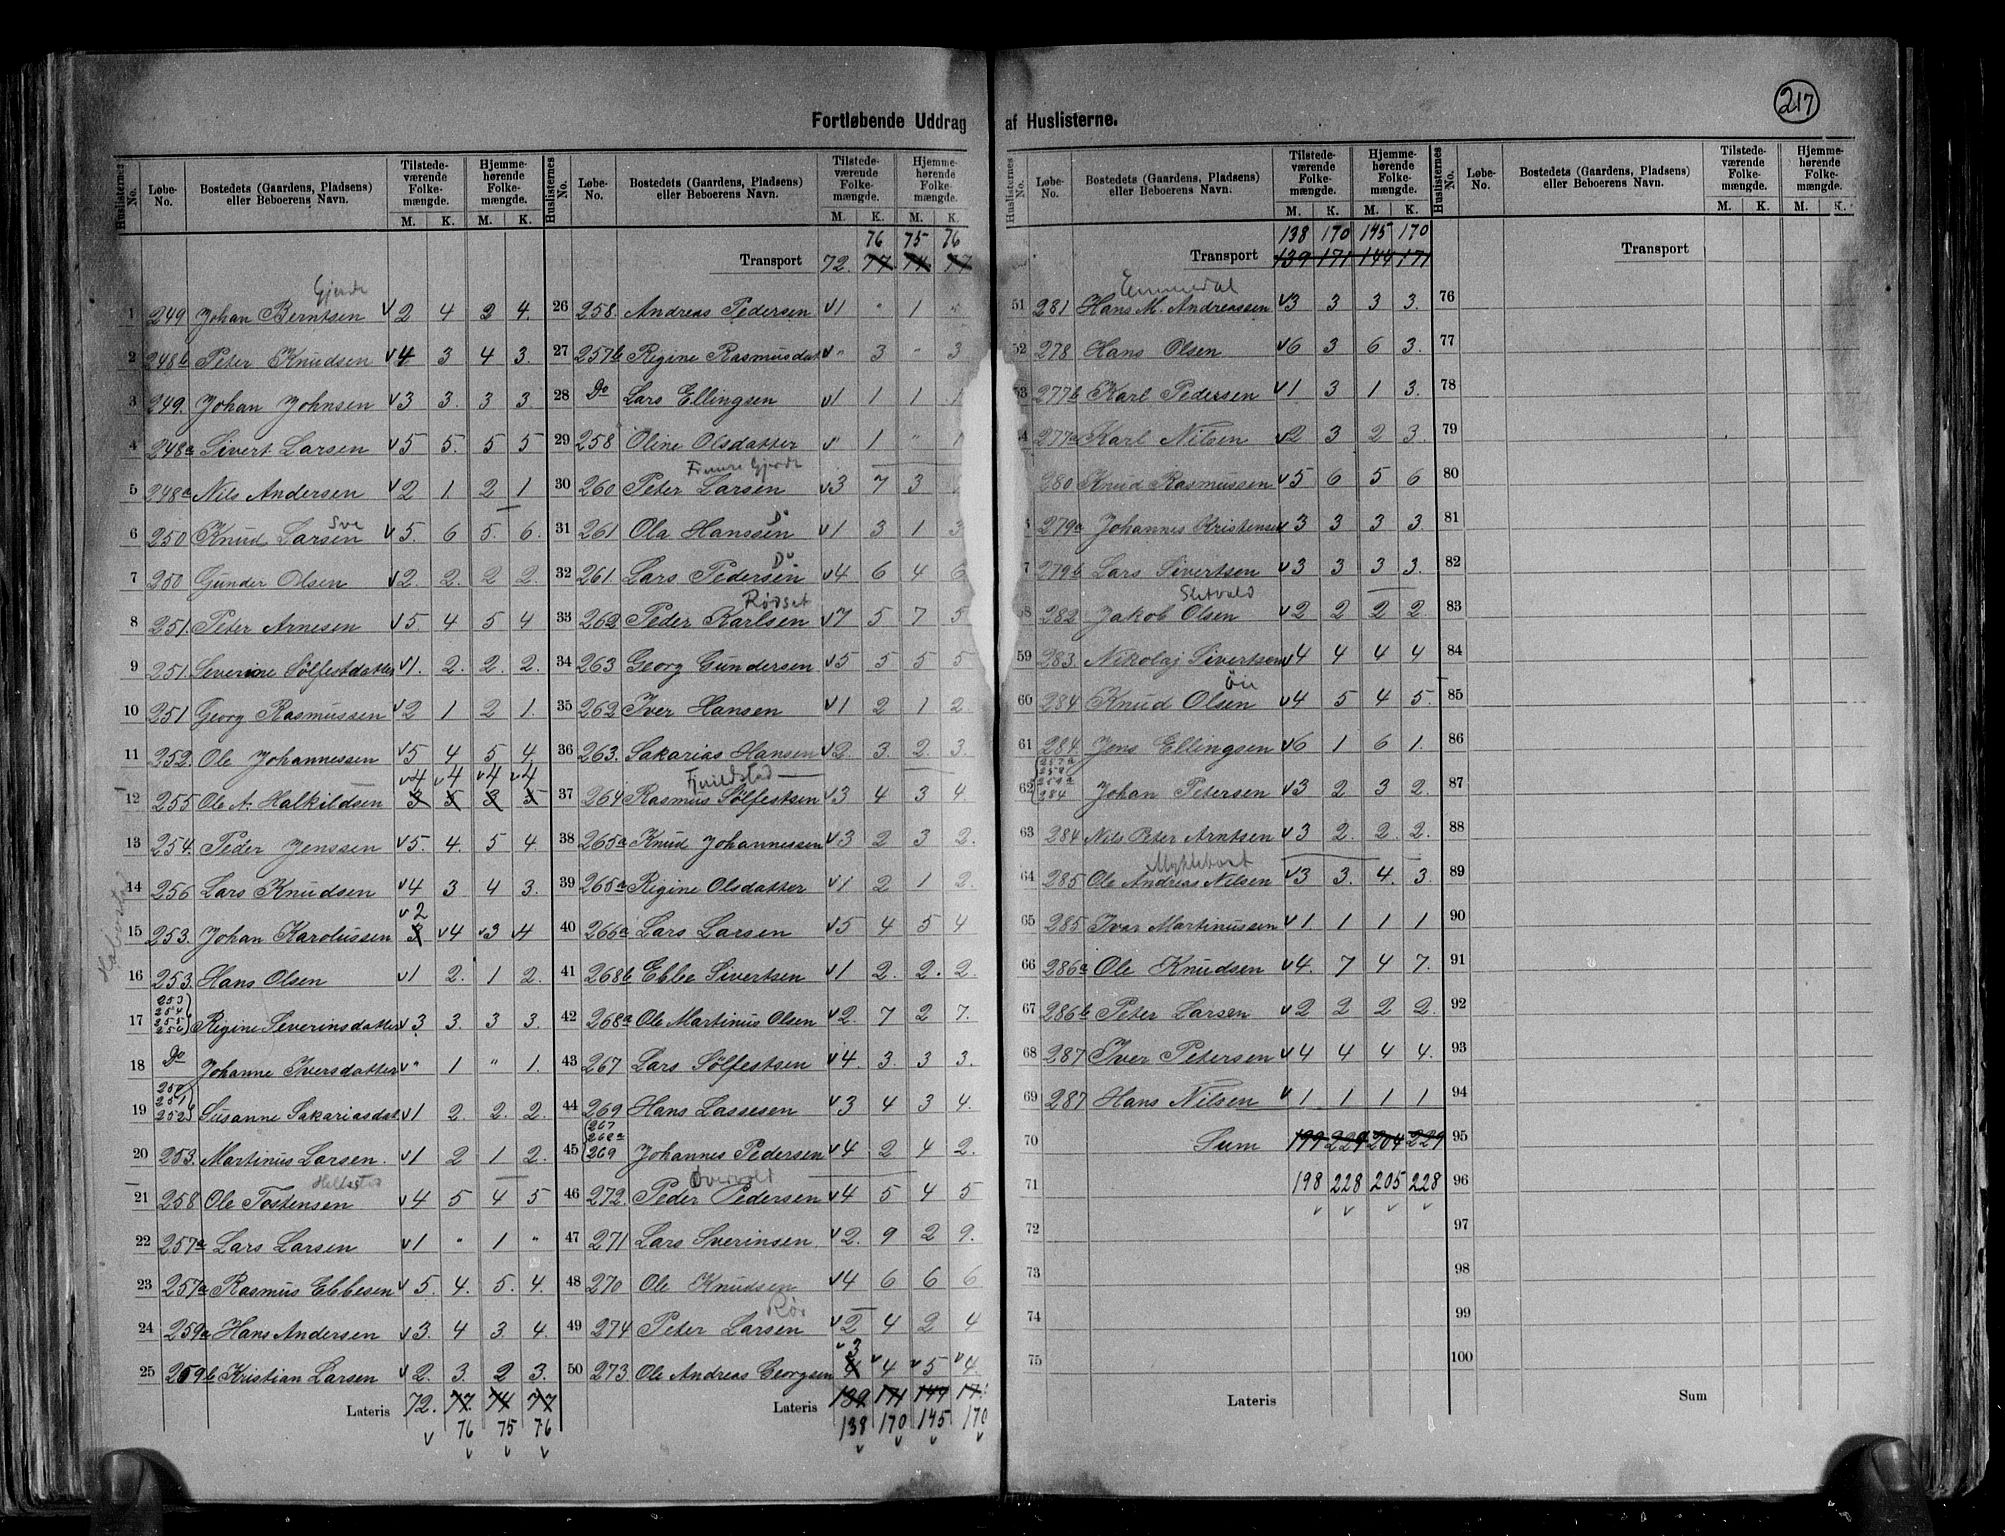 217
Fortløbende Uddrag af Huslisterne.
Huslisternes No. Løbe-No. Bostedets (Gaardens, Pladsens) eller Beboerens Navn. Tilstedeværende Folkemængde. M. K. Hjemmehørende Folkemængde. M. K.
Gjerde
1 249 Johan Berntsen v2 4 2 4.
2 248b Peter Knudsen v4 3 4 3.
3 249. Johan Johnsen v3 3. 3 3.
4 248a Sivert Larsen v5 5. 5 5
5 248a Nils Andersen v2 1 2 1
Sve
6 250 Knud Larsen v5. 6 5. 6.
7 250 Gunder Olsen v2. 2. 2 2.
8 251. Peter Arnesen v5. 4 5 4
9 251. Severine Sölfestdatter v1. 2. 2. 2.
10 251 Georg Rasmussen v2 1 2 1.
11 252. Ole Johannessen v5 4 5 4
v4 v4 v4 v4
12 255 Ole A. Halkildsen 3 5 3 5
13 254. Peder Jenssen v5. 4. 5 4.
14 256 Lars Knudsen v4 3 4 3.
v2
15 253. Johan Karolussen 3 v4 v3 v4
16 253. Hans Olsen v1 2. 1 2.
253
254
255
256
17 Regine Severinsdatter v3 3. 3 3.
18 Do Johanne Iversdatter v" 1 " 1.
250
251
252
19 Susanne Sakariasdat v1 2. 2. 2
20 253. Martinus Larsen. v1 2 1 2.
21 258 Ole Tostensen v4 5 4 5
22 257a Lars Larsen v1 " 1 "
23 257a Rasmus Ebbesen v5. 4. 5. 4.
24 259a Hans Andersen v3. 4 3. 4.
25 259b Kristian Larsen v2. 3. 2 3.
Lateris 72. 77. 74 77
76 75 76
v v v v
Huslisternes No. Løbe-No. Bostedets (Gaardens, Pladsens) eller Beboerens Navn. Tilstedeværende Folkemængde. M. K. Hjemmehørende Folkemængde. M. K.
76 75 76
Transport 72. 77 74 77
26 258. Andreas Pedersen v1 " 1 "
27 257b Regine Rasmusdat v" 3 " 3
28 Do Lars Ellingsen v1 1 1 1
29 258 Oline Olsdatter v" 1 " 1
30 260 Peter Larsen v3 7 3
Do
31 261 Ola Hanssen v1 3 1 3
Do
32 261 Lars Pedersen v4 6 4 6
Rödset
33 262 Peder Karlsen v7 5 7 5
34 263 Georg Gundersen v5 5 5 5
35 262 Iver Hansen v1 2 1 2
36 263. Sakarias Hansen v2 3. 2. 3.
37 264 Rasmus Sölfestsen v3 4 3 4
38 265a Knud Johannessen v3 2 3 2.
39 265a Regine Olsdatter v1 2 1 2.
40 266a Lars Larsen v5 4 5 4
41 268b Ebbe Sivertsen v1 2. 2. 2
42 268a Ole Martinus Olsen v2 7 2 7.
43 267 Lars Sölfestsen v4. 3. 3 3.
44 269 Hans Lassesen v3 4 3 4.
267
268a
269
45 Johannes Pedersen v4 2 4 2.
Overvold
46 272. Peder Pedersen v4 5 4 5
47 271 Lars Sverinsen v2. 9 2 9.
48 270 Ole Knudsen v4 6 6 6
49 274 Peter Larsen v2 4 2 4
v3
50 273. Ole Andreas Georgsen 4 v4 v5 v4
Lateris 139 171 144 171
138 170 145 170
v v v v
Huslisternes No. Løbe-No. Bostedets (Gaardens, Pladsens) eller Beboerens Navn. Tilstedeværende Folkemængde. M. K. Hjemmehørende Folkemængde. M. K.
138 170 145 170
Transport 139 171 144 171
51 281 Hans M. Andreassen v3 3 3 3.
52 278 Hans Olsen v6 3 6 3.
53 277b Karl Pedersen v1 3 1 3.
277a Karl Nilsen v2 3 2 3.
280 Knud Rasmussen v5 6 5 6
279a Johannes Kristensen v3 3 3 3
7 279b Lars Sivertsen v3 3 3 3.
Sletvold
58 282 Jakob Olsen v2 2 2 2.
59 283. Nikolaj Sivertsen v4 4 4 4
Öie
60 284 Knud Olsen v4 5 4 5.
61 284. Jens Ellingsen v6 1 6 1.
62 284 Johan Petersen v3 2 3 2
63 284 Nils Peter Arntsen v3 2. 2. 2.
Myklebost
64 285 Ole Andreas Nilsen v3 3. 4. 3
65 285 Ivar Martinussen v1 1 1 1
66 286a Ole Knudsen v4. 7 4 7.
67 286b Peter Larsen v2 2 2 2
68 287 Iver Petersen v4 4 4 4.
69 287 Hans Nilsen v1 1 1 1
70 Sum 199 229 204 229
71 198 228 205 228
v v v v
72
73
74
75
Lateris
Huslisternes No. Løbe-No. Bostedets (Gaardens, Pladsens) eller Beboerens Navn. Tilstedeværende Folkemængde. M. K. Hjemmehørende Folkemængde. M. K.
Transport
76
77
78
79
80
81
82
83
84
85
86
87
88
89
90
91
92
93
94
95
96
97
98
99
100
Sum